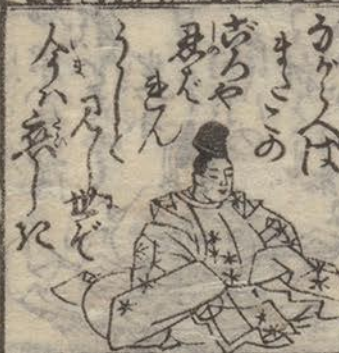 ながらへば
またこの
ごろや
忍ば
れん
うしと
見し世ぞ
今は恋しき